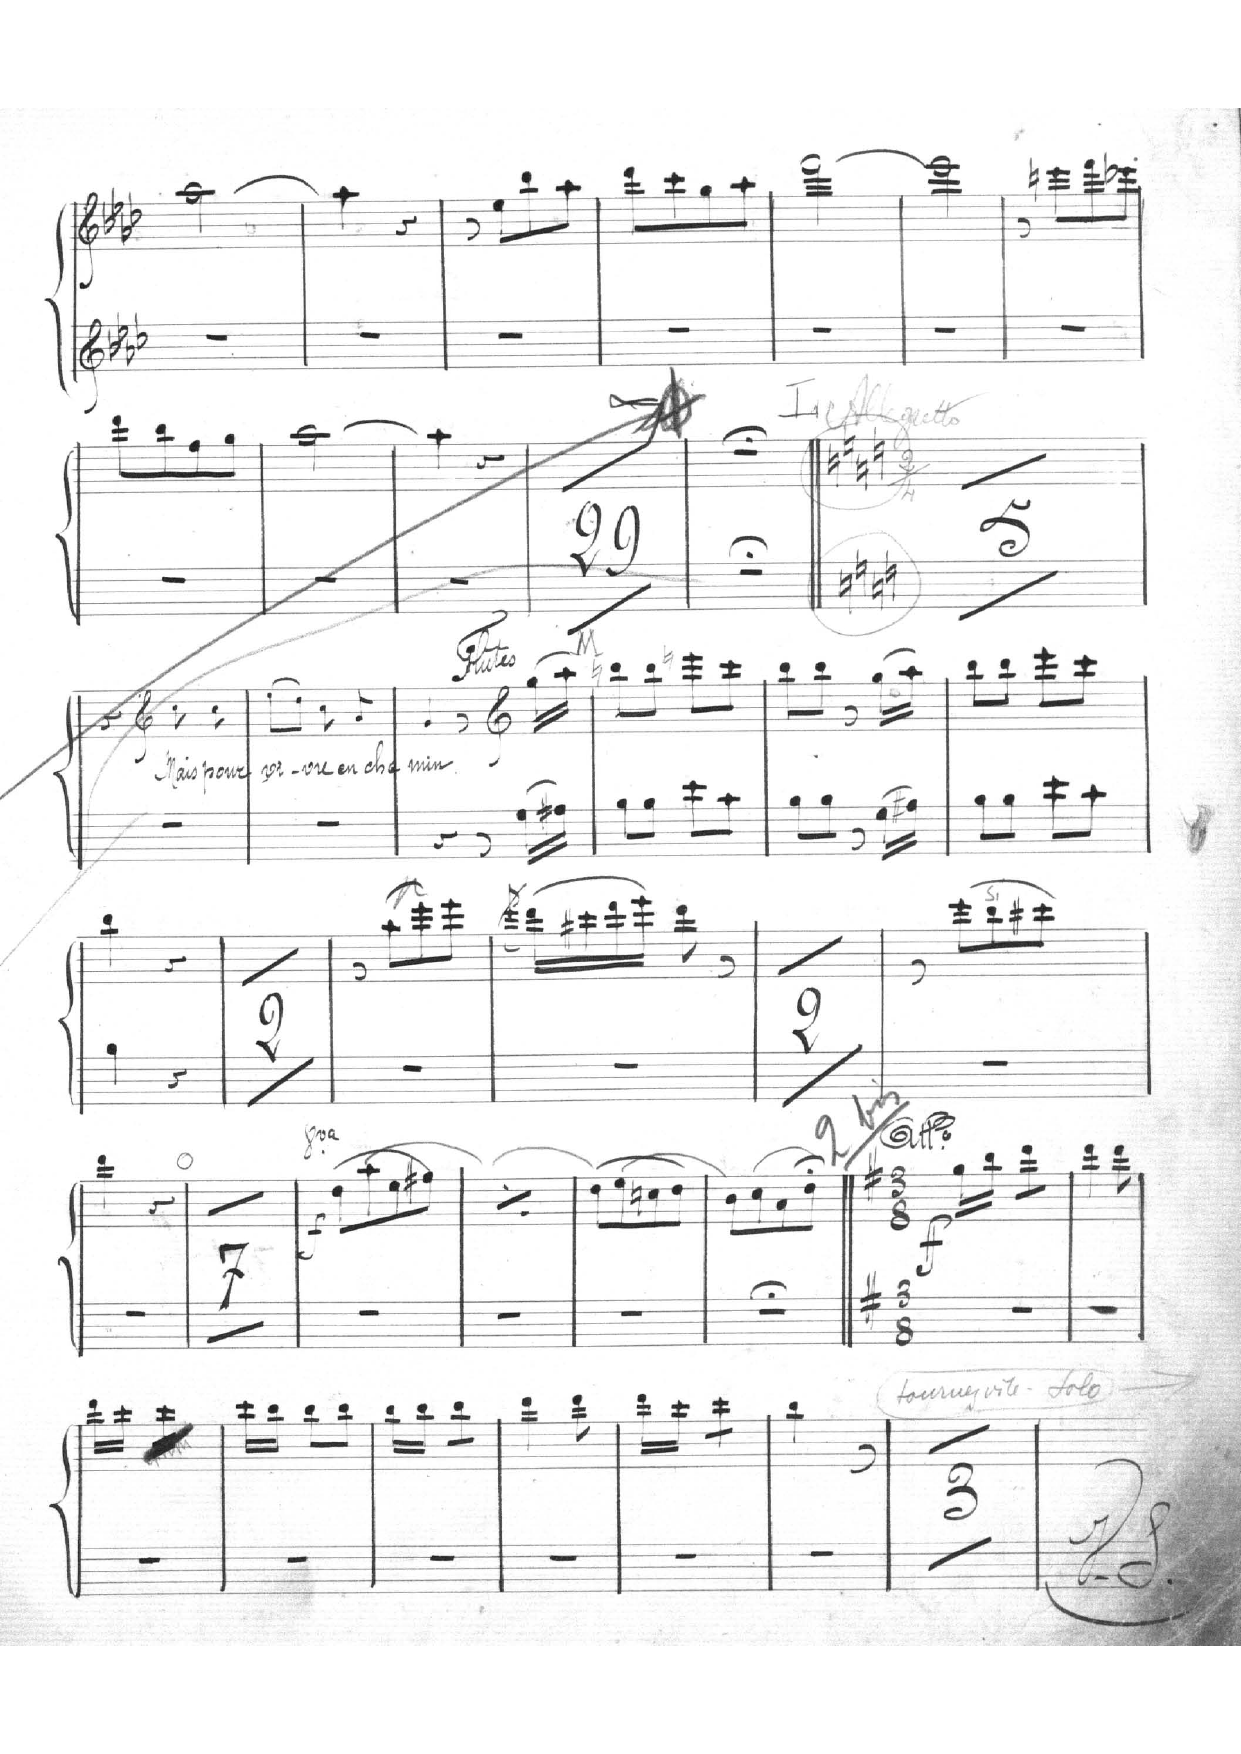 Allegretto
2
4
29
5
Flutes
Mais pour vi-vre en che min.
2
2
8va
2 bis
All°
3
8
7
f
f
3
8
tournez vite - Solo
3
V. S.